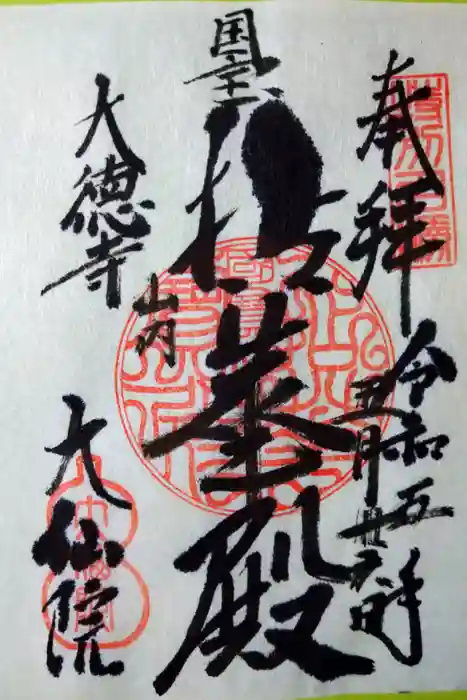 奉拝
令和五年
五月卅一日
国宝
拈華殿
大徳寺
山内
大仙院